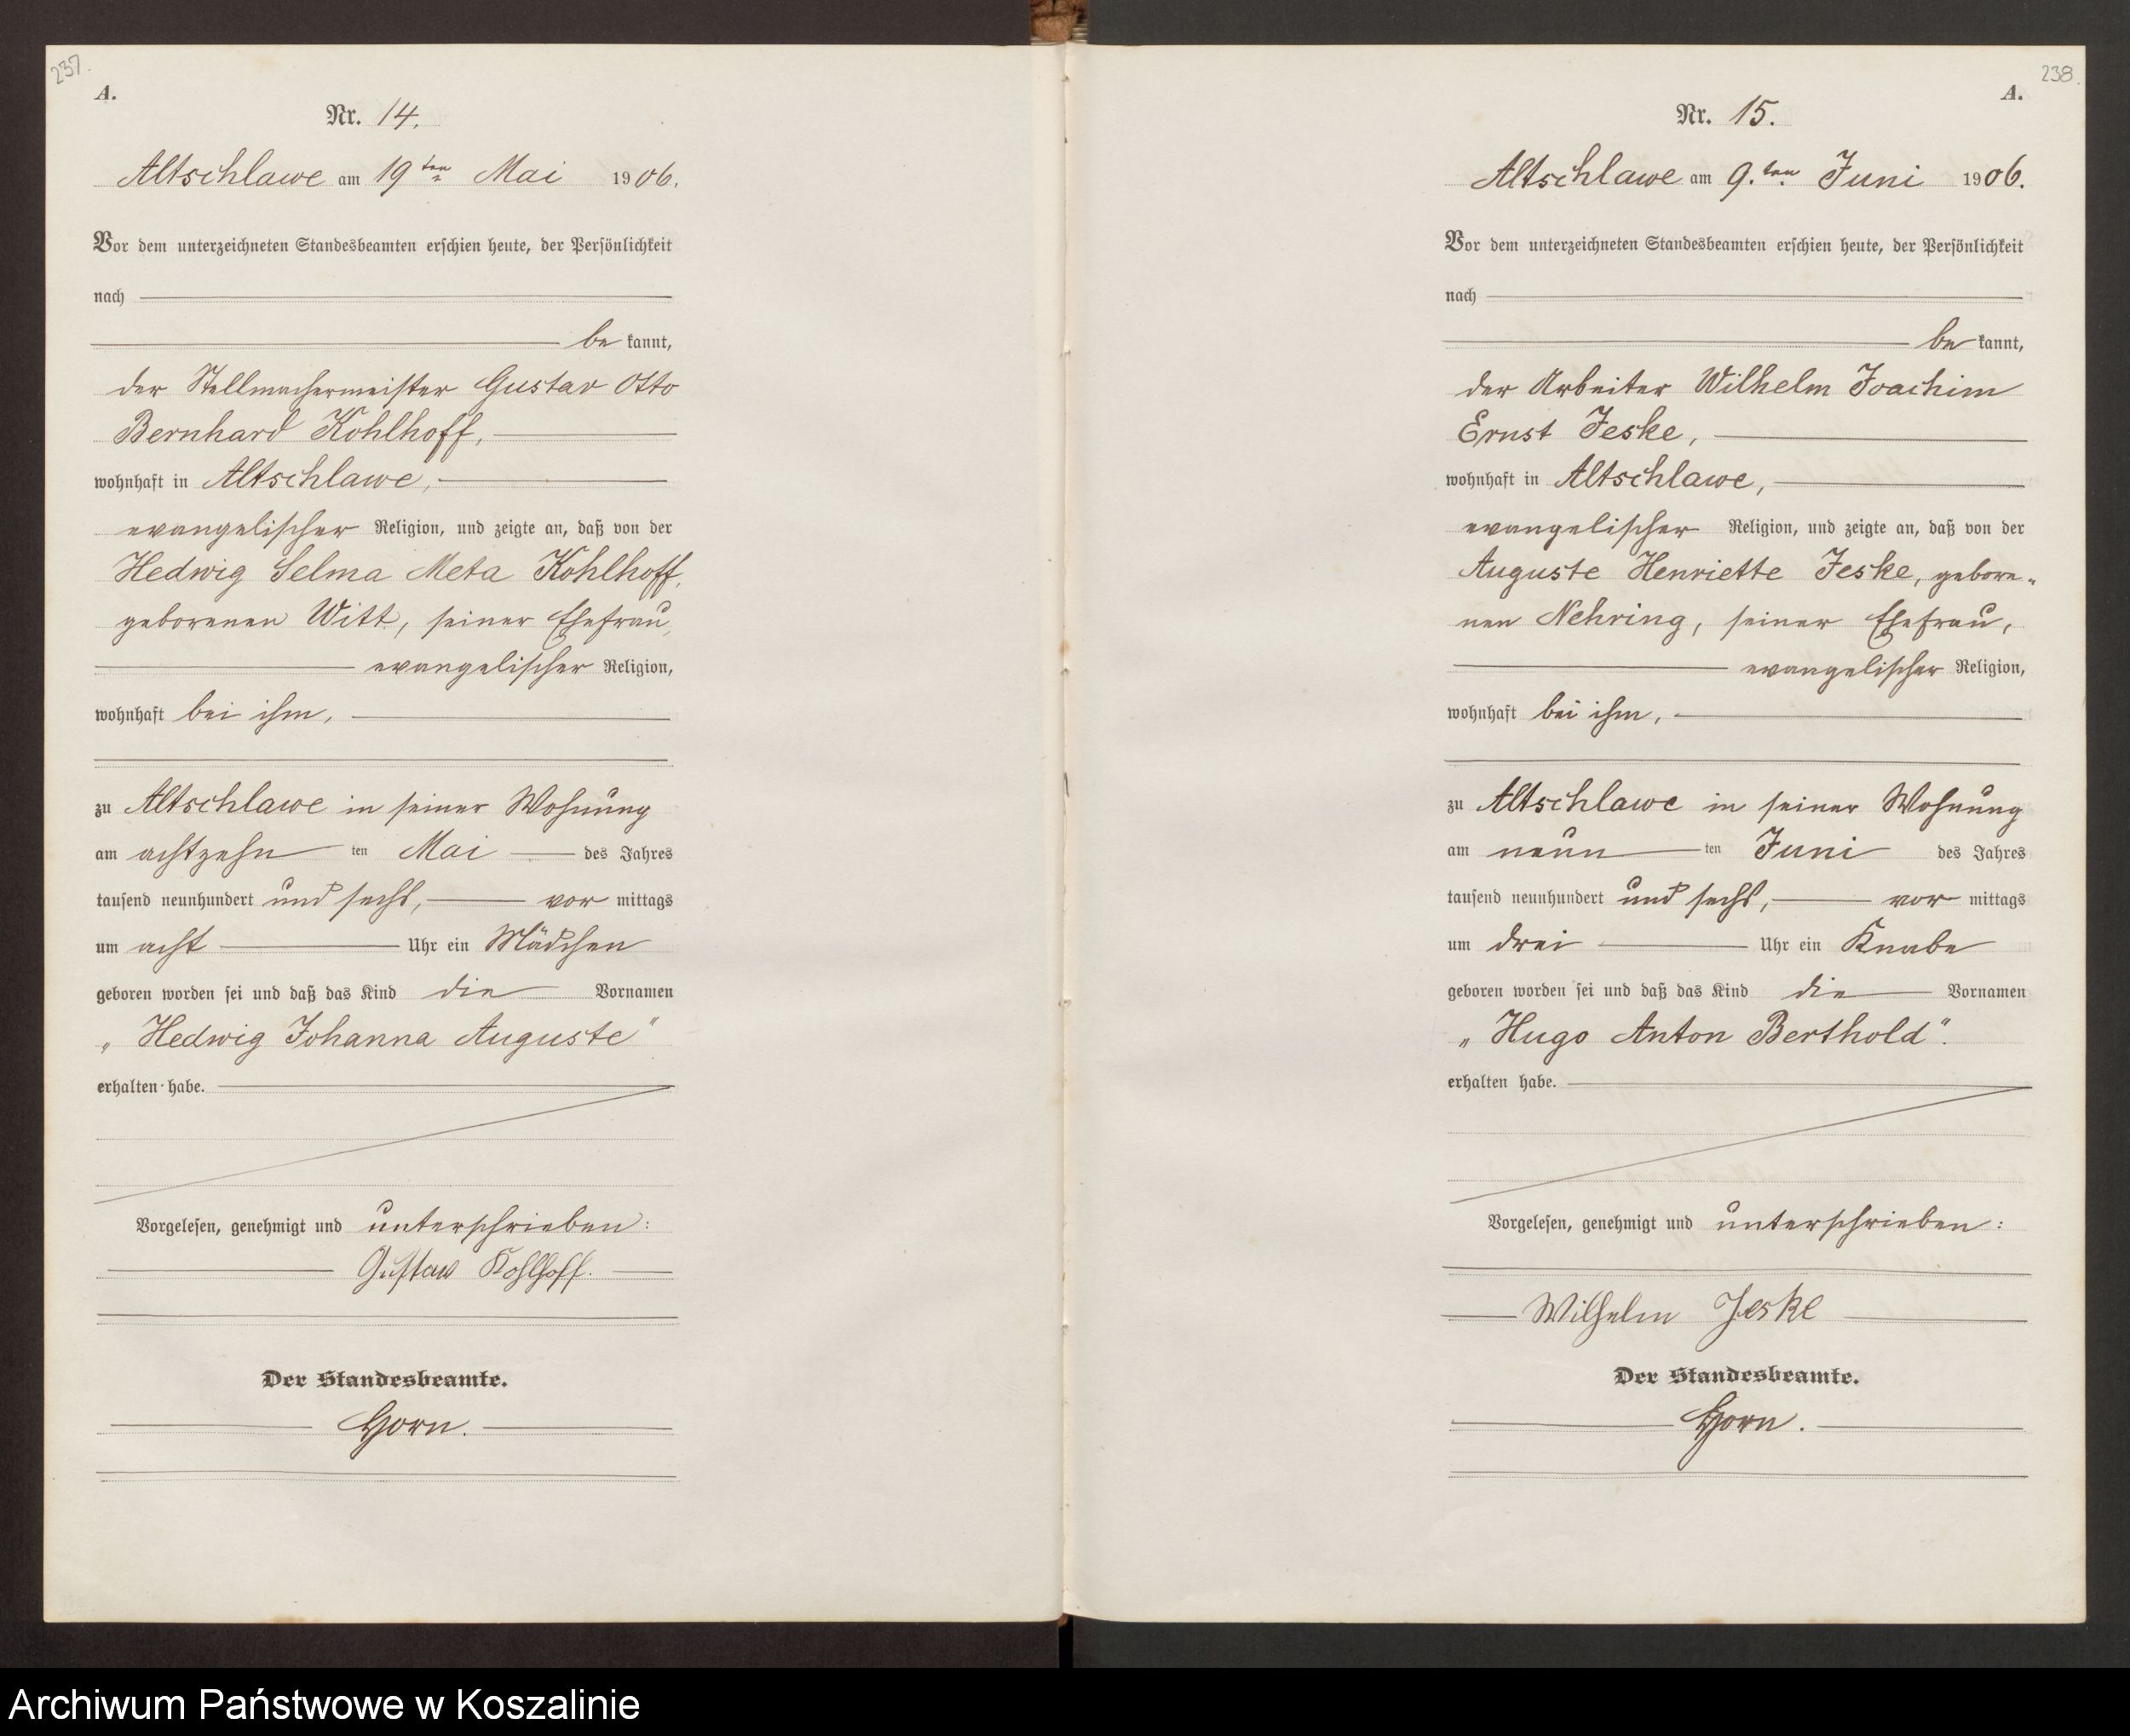 237.
A.
Nr. 14.
Altschlawe am 19ten Mai 1906.
Vor dem unterzeichneten Standesbeamten erschien heute, der Persönlichkeit
nach
bekannt,
der Stellmachermeister Gustav Otto
Bernhard Kohlhoff,
wohnhaft in Altschlawe,
evangelischer Religion, und zeigte an, daß von der
Hedwig Selma Meta Kohlhoff,
geborenen Witt, seiner Ehefrau,
evangelischer Religion,
wohnhaft bei ihm,
zu Altschlawe in seiner Wohnung
am achtzehn ten Mai des Jahres
tausend neunhundert und sechs, vor mittags
um acht Uhr ein Mädchen
geboren worden sei und daß das Kind die Vornamen
„Hedwig Johanna Auguste“
erhalten habe.
Vorgelesen, genehmigt und unterschrieben:
Gustav Kohlhoff.
Der Standesbeamte.
Horn.
238.
A.
Nr. 15.
Altschlawe am 9.ten Juni 1906.
Vor dem unterzeichneten Standesbeamten erschien heute, der Persönlichkeit
nach
bekannt,
der Arbeiter Wilhelm Joachim
Ernst Jeske,
wohnhaft in Altschlawe,
evangelischer Religion, und zeigte an, daß von der
Auguste Henriette Jeske, gebore-
nen Nehring, seiner Ehefrau,
evangelischer Religion,
wohnhaft bei ihm,
zu Altschlawe in seiner Wohnung
am neun ten Juni des Jahres
tausend neunhundert und sechs, vor mittags
um drei Uhr ein Knabe
geboren worden sei und daß das Kind die Vornamen
„Hugo Anton Berthold“.
erhalten habe.
Vorgelesen, genehmigt und unterschrieben:
Wilhelm Jeske
Der Standesbeamte.
Horn.
Archiwum Państwowe w Koszalinie